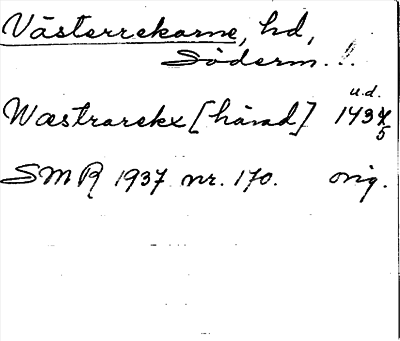 Västerrekarne, hd,
Söderm. l.
u.d.
Wæstrarekx [härad] 1437
5
SMR 1937 nr. 170. orig.